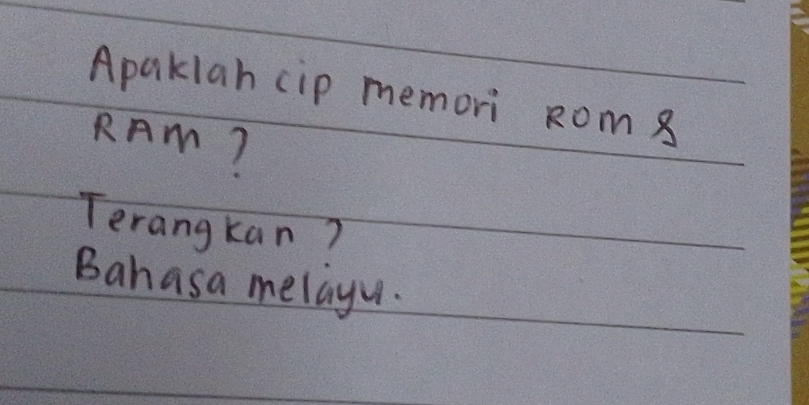 Apaklah cip memori ROM &
RAM ?
Terangkan ?
Bahasa melayu.